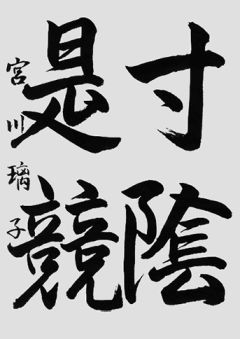 寸陰
是競
宮川璃子